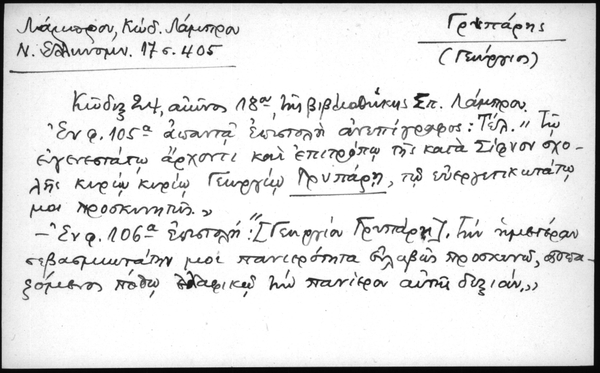 Λάμπρου, Κώδ. Λάμπρου
Ν. Ἑλληνομν. 17 σ. 405
Γρυπάρης
(Γεώργιος)
Κῶδιξ 24, αἰῶνος 18ου, τῆς βιβλιοθήκης Σπ. Λάμπρου.
Ἐν φ. 105α ἀπαντᾷ ἐπιστολὴ ἀνεπίγραφος: Τέλ. "Τῷ
εὐγενεστάτῳ ἄρχοντι καὶ ἐπιτρόπῳ τῆς κατὰ Σίφνον σχο-
λῆς κυρίῳ κυρίῳ Γεωργίῳ Γρυπάρῃ, τῷ εὐεργετικωτάτῳ
μοι προσκυνητῶς."
– Ἐν φ. 106α ἐπιστολή: "[Γεωργίου Γρυπάρη]. Τὴν ἡμετέραν
σεβασμιωτάτην μοι πανιερότητα εὐλαβῶς προσκυνῶ, ἀσπα-
ζόμενος πόθῳ τὴν πανίερον αὐτῆς δεξιάν."